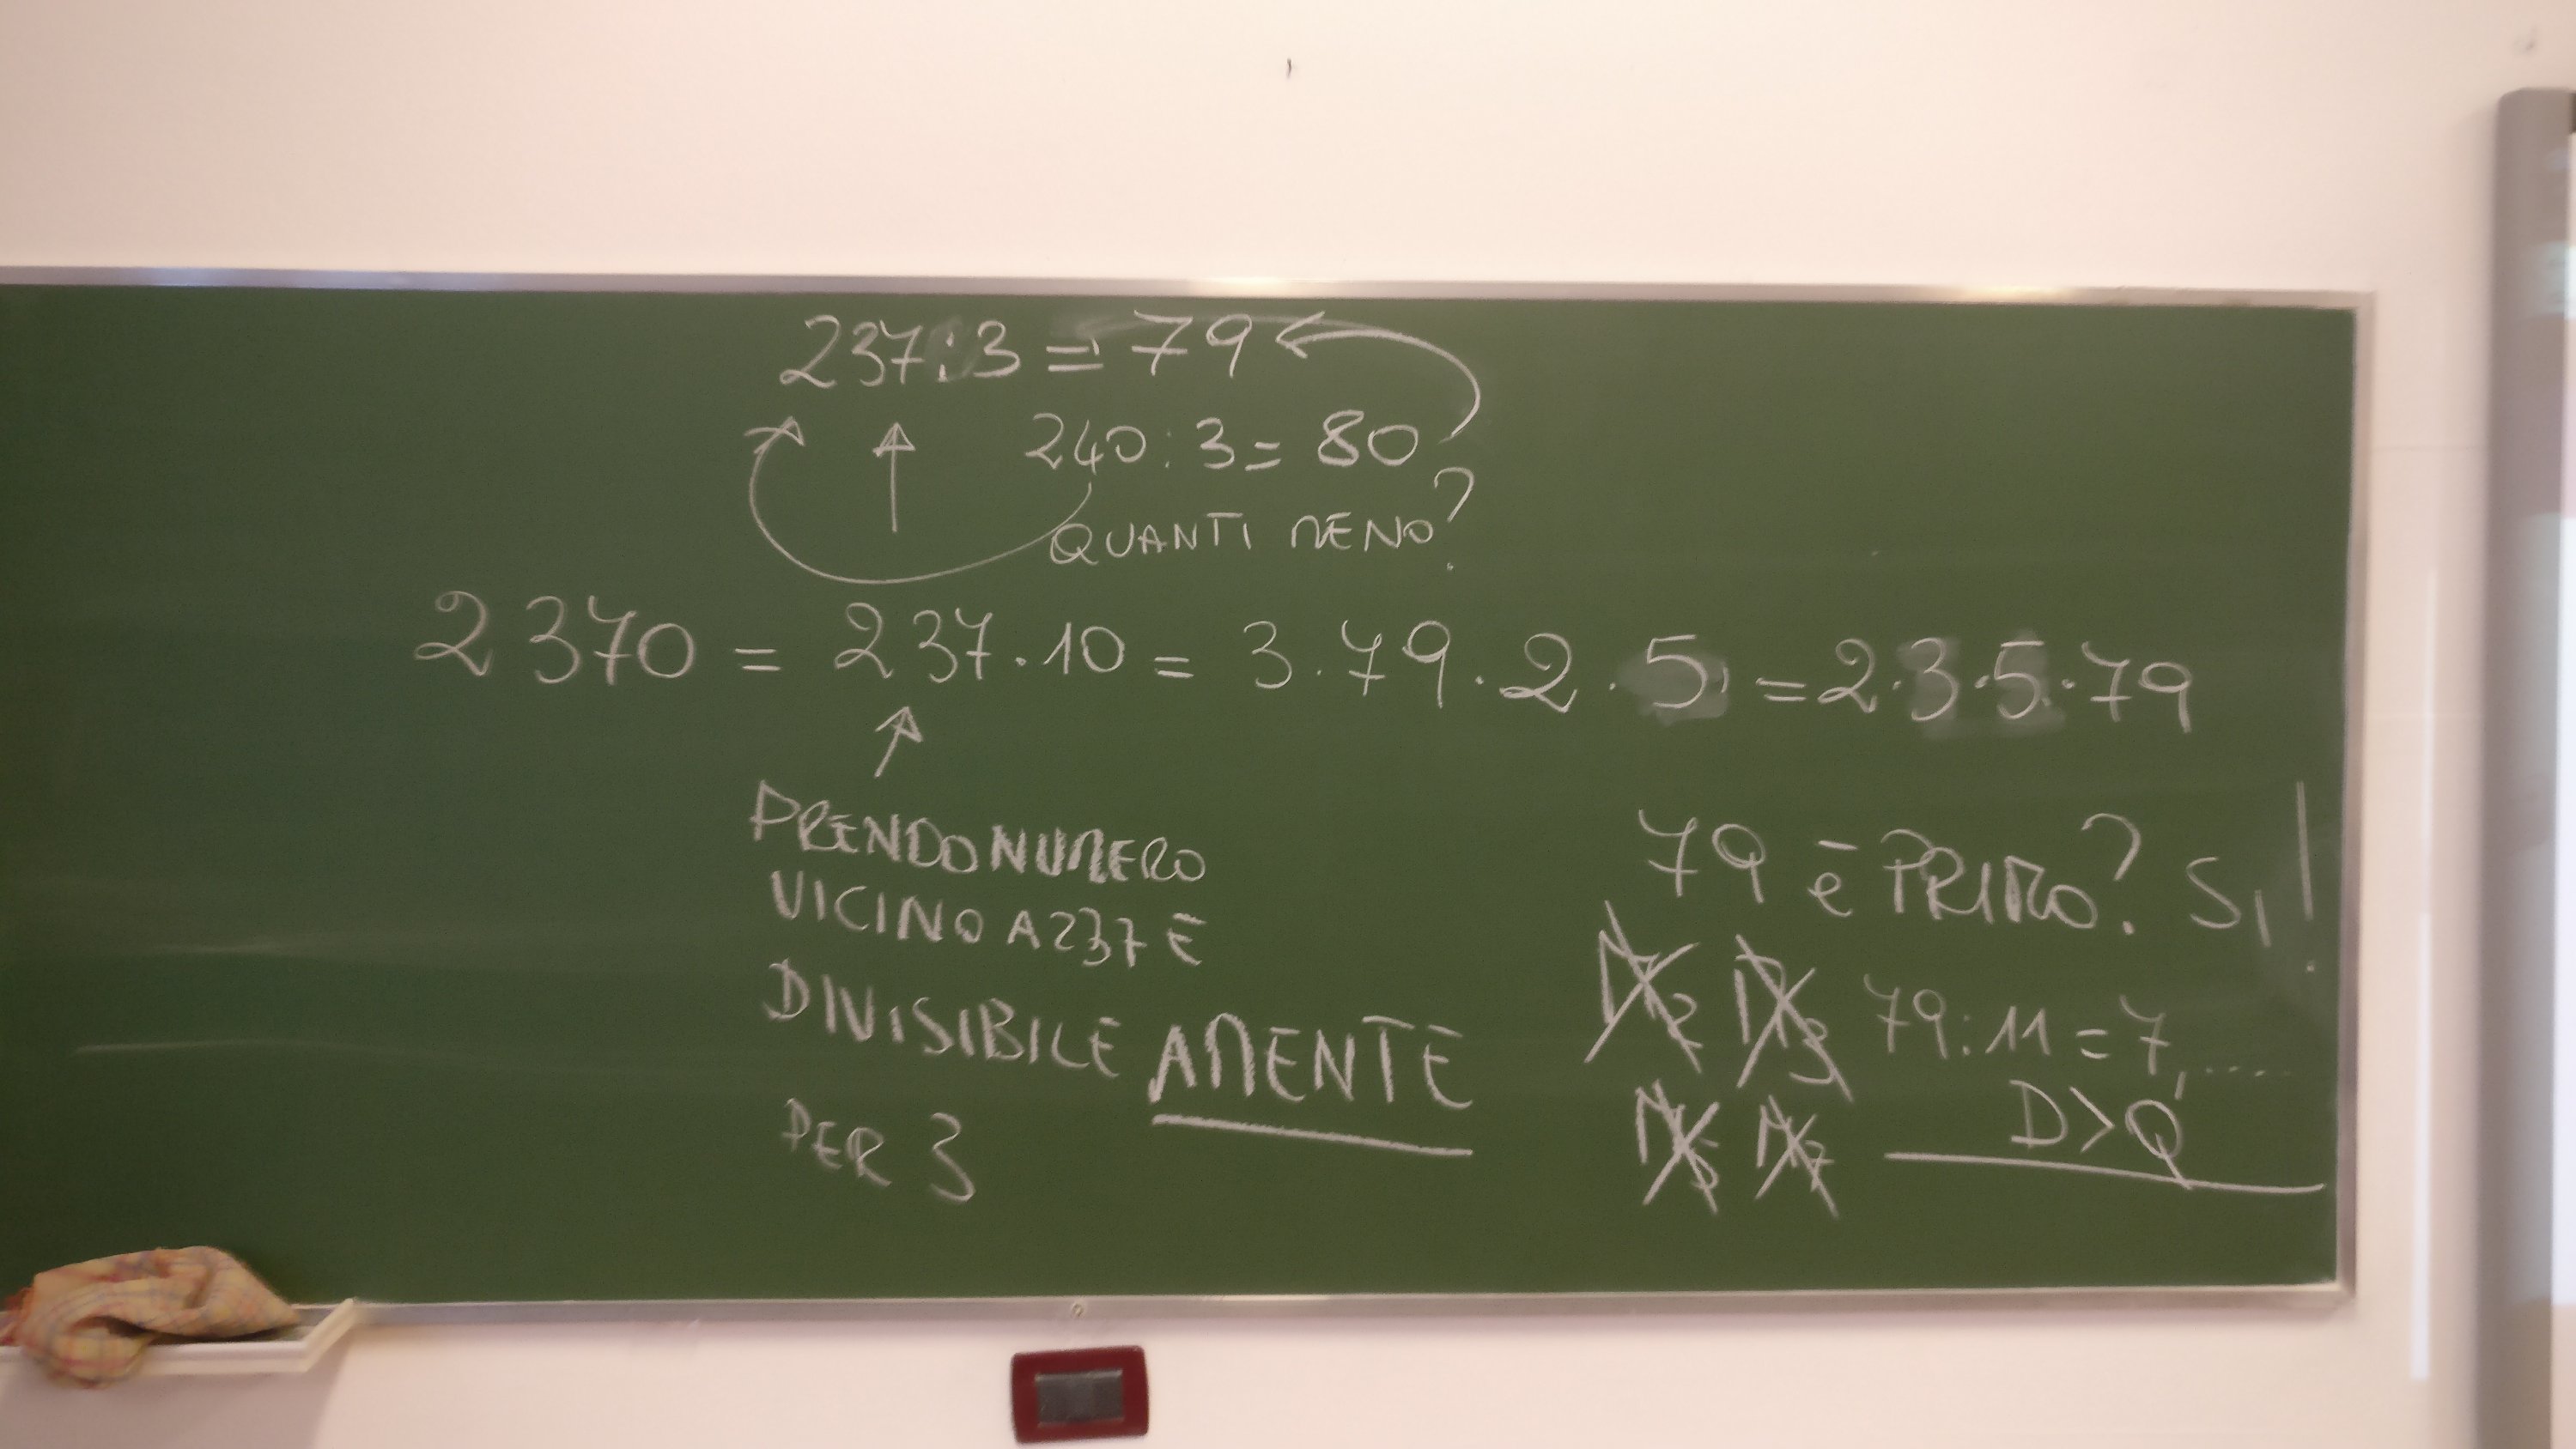 237:3 = 79
240:3 = 80
QUANTI MENO?
2370 = 237·10 = 3·79·2·5 = 2·3·5·79
PRENDO NUMERO
VICINO A 237 E
DIVISIBILE AMENTE
PER 3
79 è PRIMO? SI!
79:11 = 7,....
D>Q